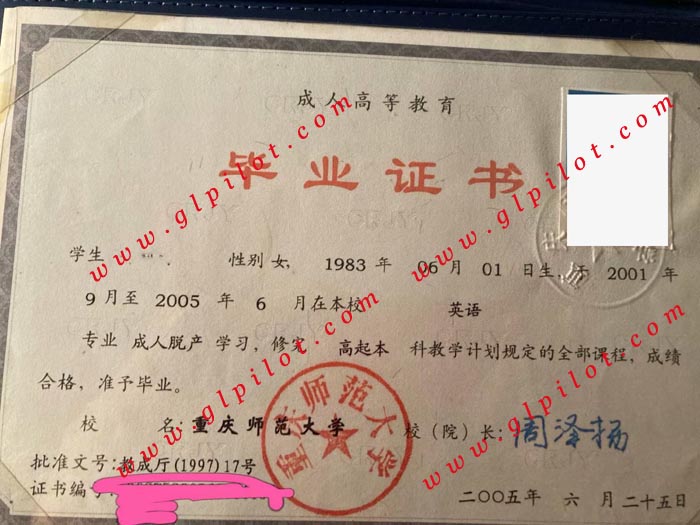 成人高等教育
毕业证书
学生 性别 女, 1983 年 06 月 01 日生, 于 2001 年
9 月至 2005 年 6 月在本校 英语
专业 成人脱产 学习, 修完 高起本 科教学计划规定的全部课程, 成绩
合格, 准予毕业。
校 名: 重庆师范大学 校(院)长: 周泽扬
批准文号: 教成厅(1997)17号
证书编号
二〇〇五年 六月二十五日
重庆师范大学
www.glpilot.com
www.glpilot.com
www.glpilot.com
www.glpilot.com
www.glpilot.com
www.glpilot.com